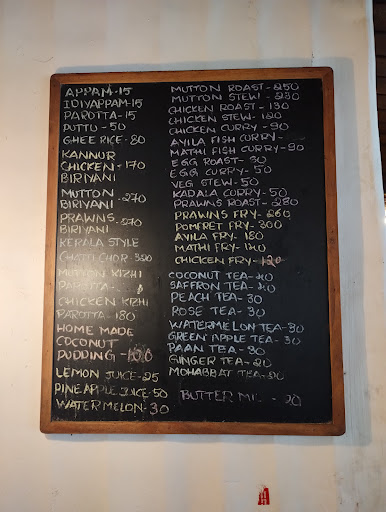 APPAM-15
IDIYAPPAM-15
PAROTTA-15
PUTTU-50
GHEE RICE-80
KANNUR
CHICKEN-170
BIRIYANI
MUTTON
BIRIYANI-270
PRAWNS
BIRIYANI-270
KERALA STYLE
CHATTI CHOR-350
MUTTON KIZHI
PAROTTA-
CHICKEN KIZHI
PAROTTA-180
HOME MADE
COCONUT
PUDDING-100
LEMON JUICE-25
PINEAPPLE JUICE-50
WATERMELON-30
MUTTON ROAST-250
MUTTON STEW-230
CHICKEN ROAST-130
CHICKEN STEW-120
CHICKEN CURRY-90
AYILA FISH CURRY-
MATHI FISH CURRY-90
EGG ROAST-50
EGG CURRY-50
VEG STEW-50
KADALA CURRY-50
PRAWNS ROAST-280
PRAWNS FRY-260
POMFRET FRY-300
AYILA FRY-180
MATHI FRY-120
CHICKEN FRY-120
COCONUT TEA-
SAFFRON TEA-
PEACH TEA-30
ROSE TEA-30
WATERMELON TEA-30
GREEN APPLE TEA-30
PAAN TEA-30
GINGER TEA-20
MOHABBAT TEA-
BUTTER 20